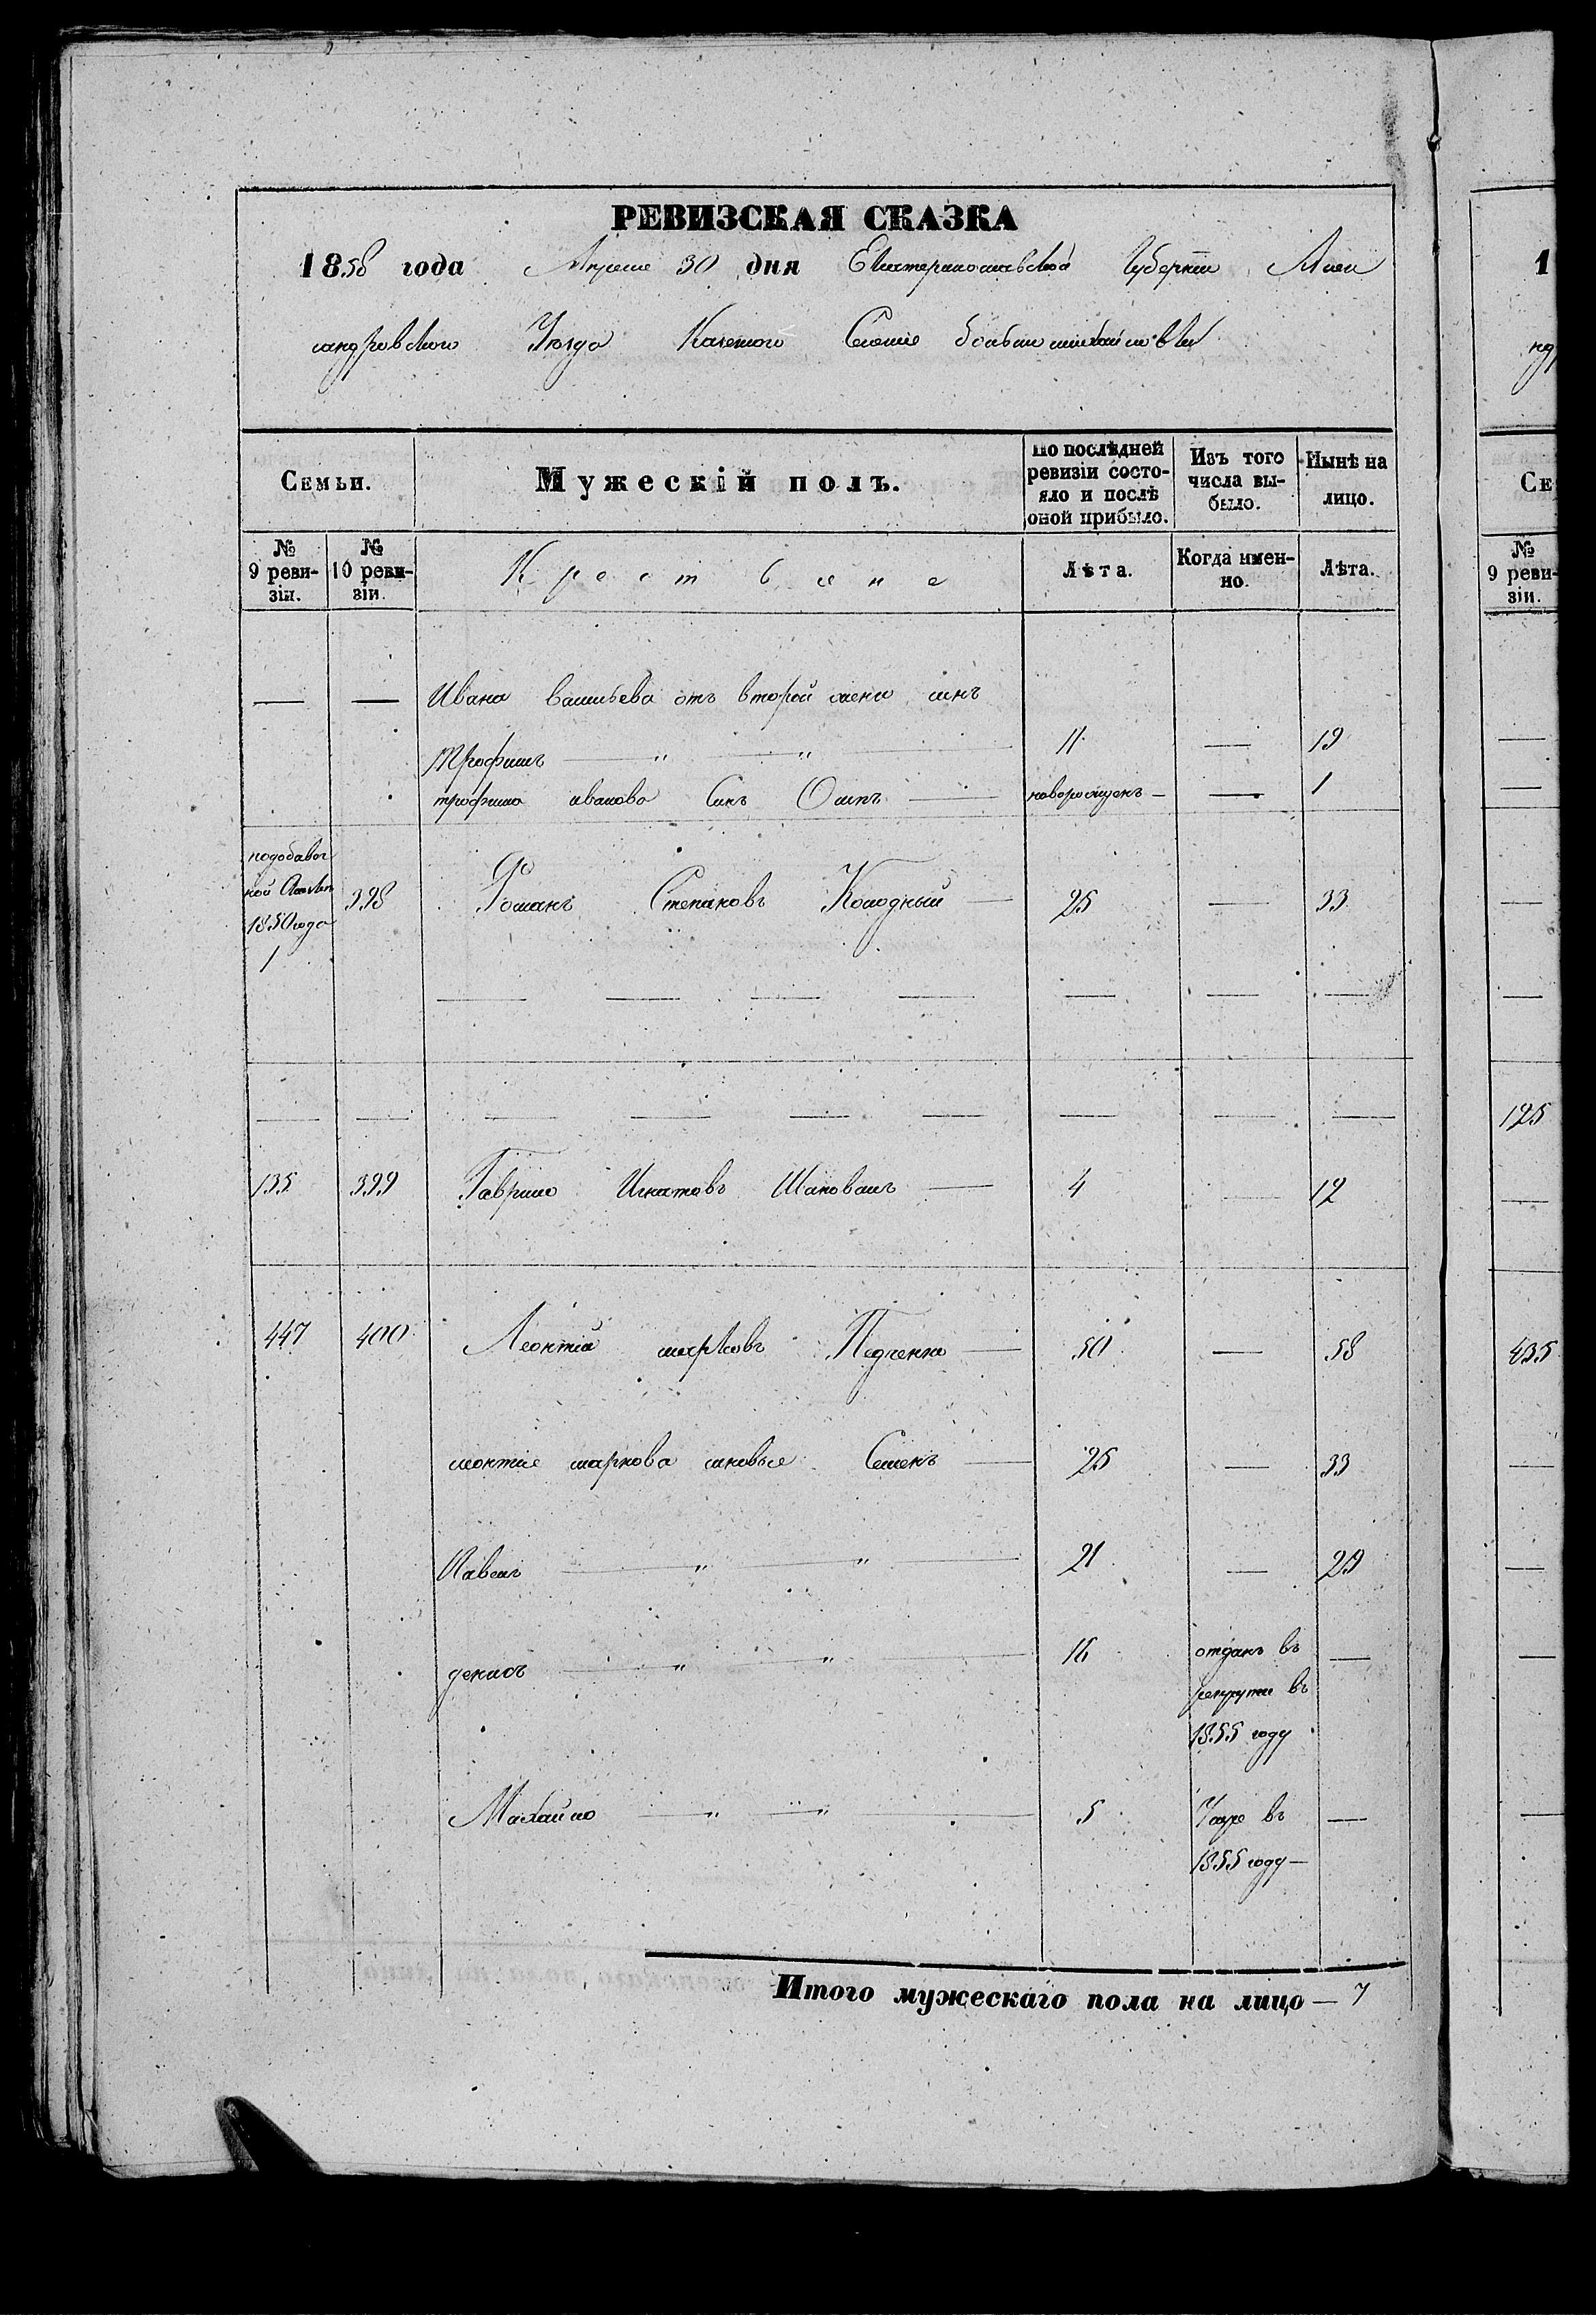 РЕВИЗСКАЯ СКАЗКА
1858 года Апреля 30 дня Екатеринославской Губернии Алек
сандровского Уезда Казенного Селение большемихайловки
Семьи.
Мужескій полъ.
По послѣдней ревизіи состояло и послѣ оной прибыло.
Изъ того числа выбыло.
Нынѣ на лицо.
№ 9 ревизіи.
№ 10 ревизіи.
Крестьяне
Лѣта.
Когда именно.
Лѣта.
— — Ивана васильева отъ второй жени синъ
Трофимъ — " — " — 11 — 19
трофима иванова Синъ Осипъ — новорожденъ — — 1
подобавоч
ной 
1850 года
1
398 Романъ Степановъ Колодный — 25 — 33
— — — — — — —
— — — — — — — — —
135 399 Гаврило Игнатовъ Шаповалъ — 4 — 12
447 400 Леонтій марковъ Педченко — 50 — 58
леонтие маркова синовье Семенъ — 25 — 33
Павелъ — " — " — 21 — 29
денисъ — " — " — 16 отданъ въ —
рекруты въ
1855 году
Михайло — " — " — 5 Умре въ —
1855 году —
Итого мужескаго пола на лицо — 7
1
нд
Се
№
9 реви-
зіи.
—
—
—
—
125
—
435
—
—
—
—